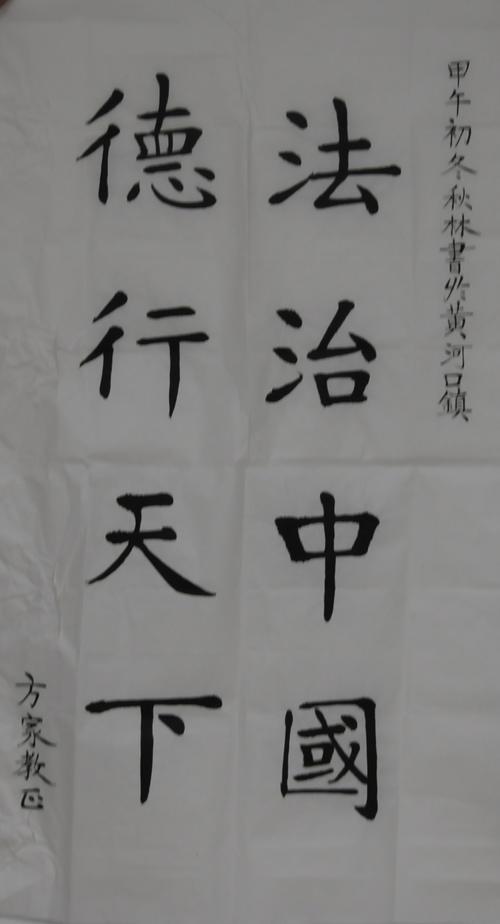 甲午初冬秋林書於黃河口鎮
法治中國
德行天下
方家教正